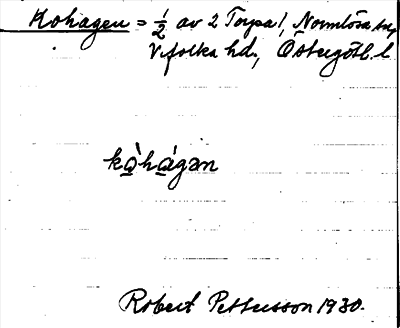 Kohagen = ½ av 2 Torpa!, Normlösa sn,
Vifolka hd., Östergötl. l
kò̱há̱gən
Robert Pettersson 1930.